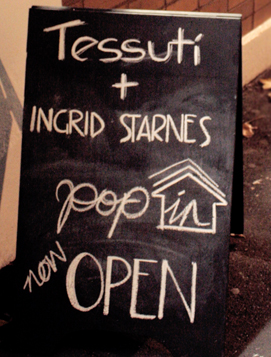 Tessuti
+
INGRID STARNES
pop in
now OPEN